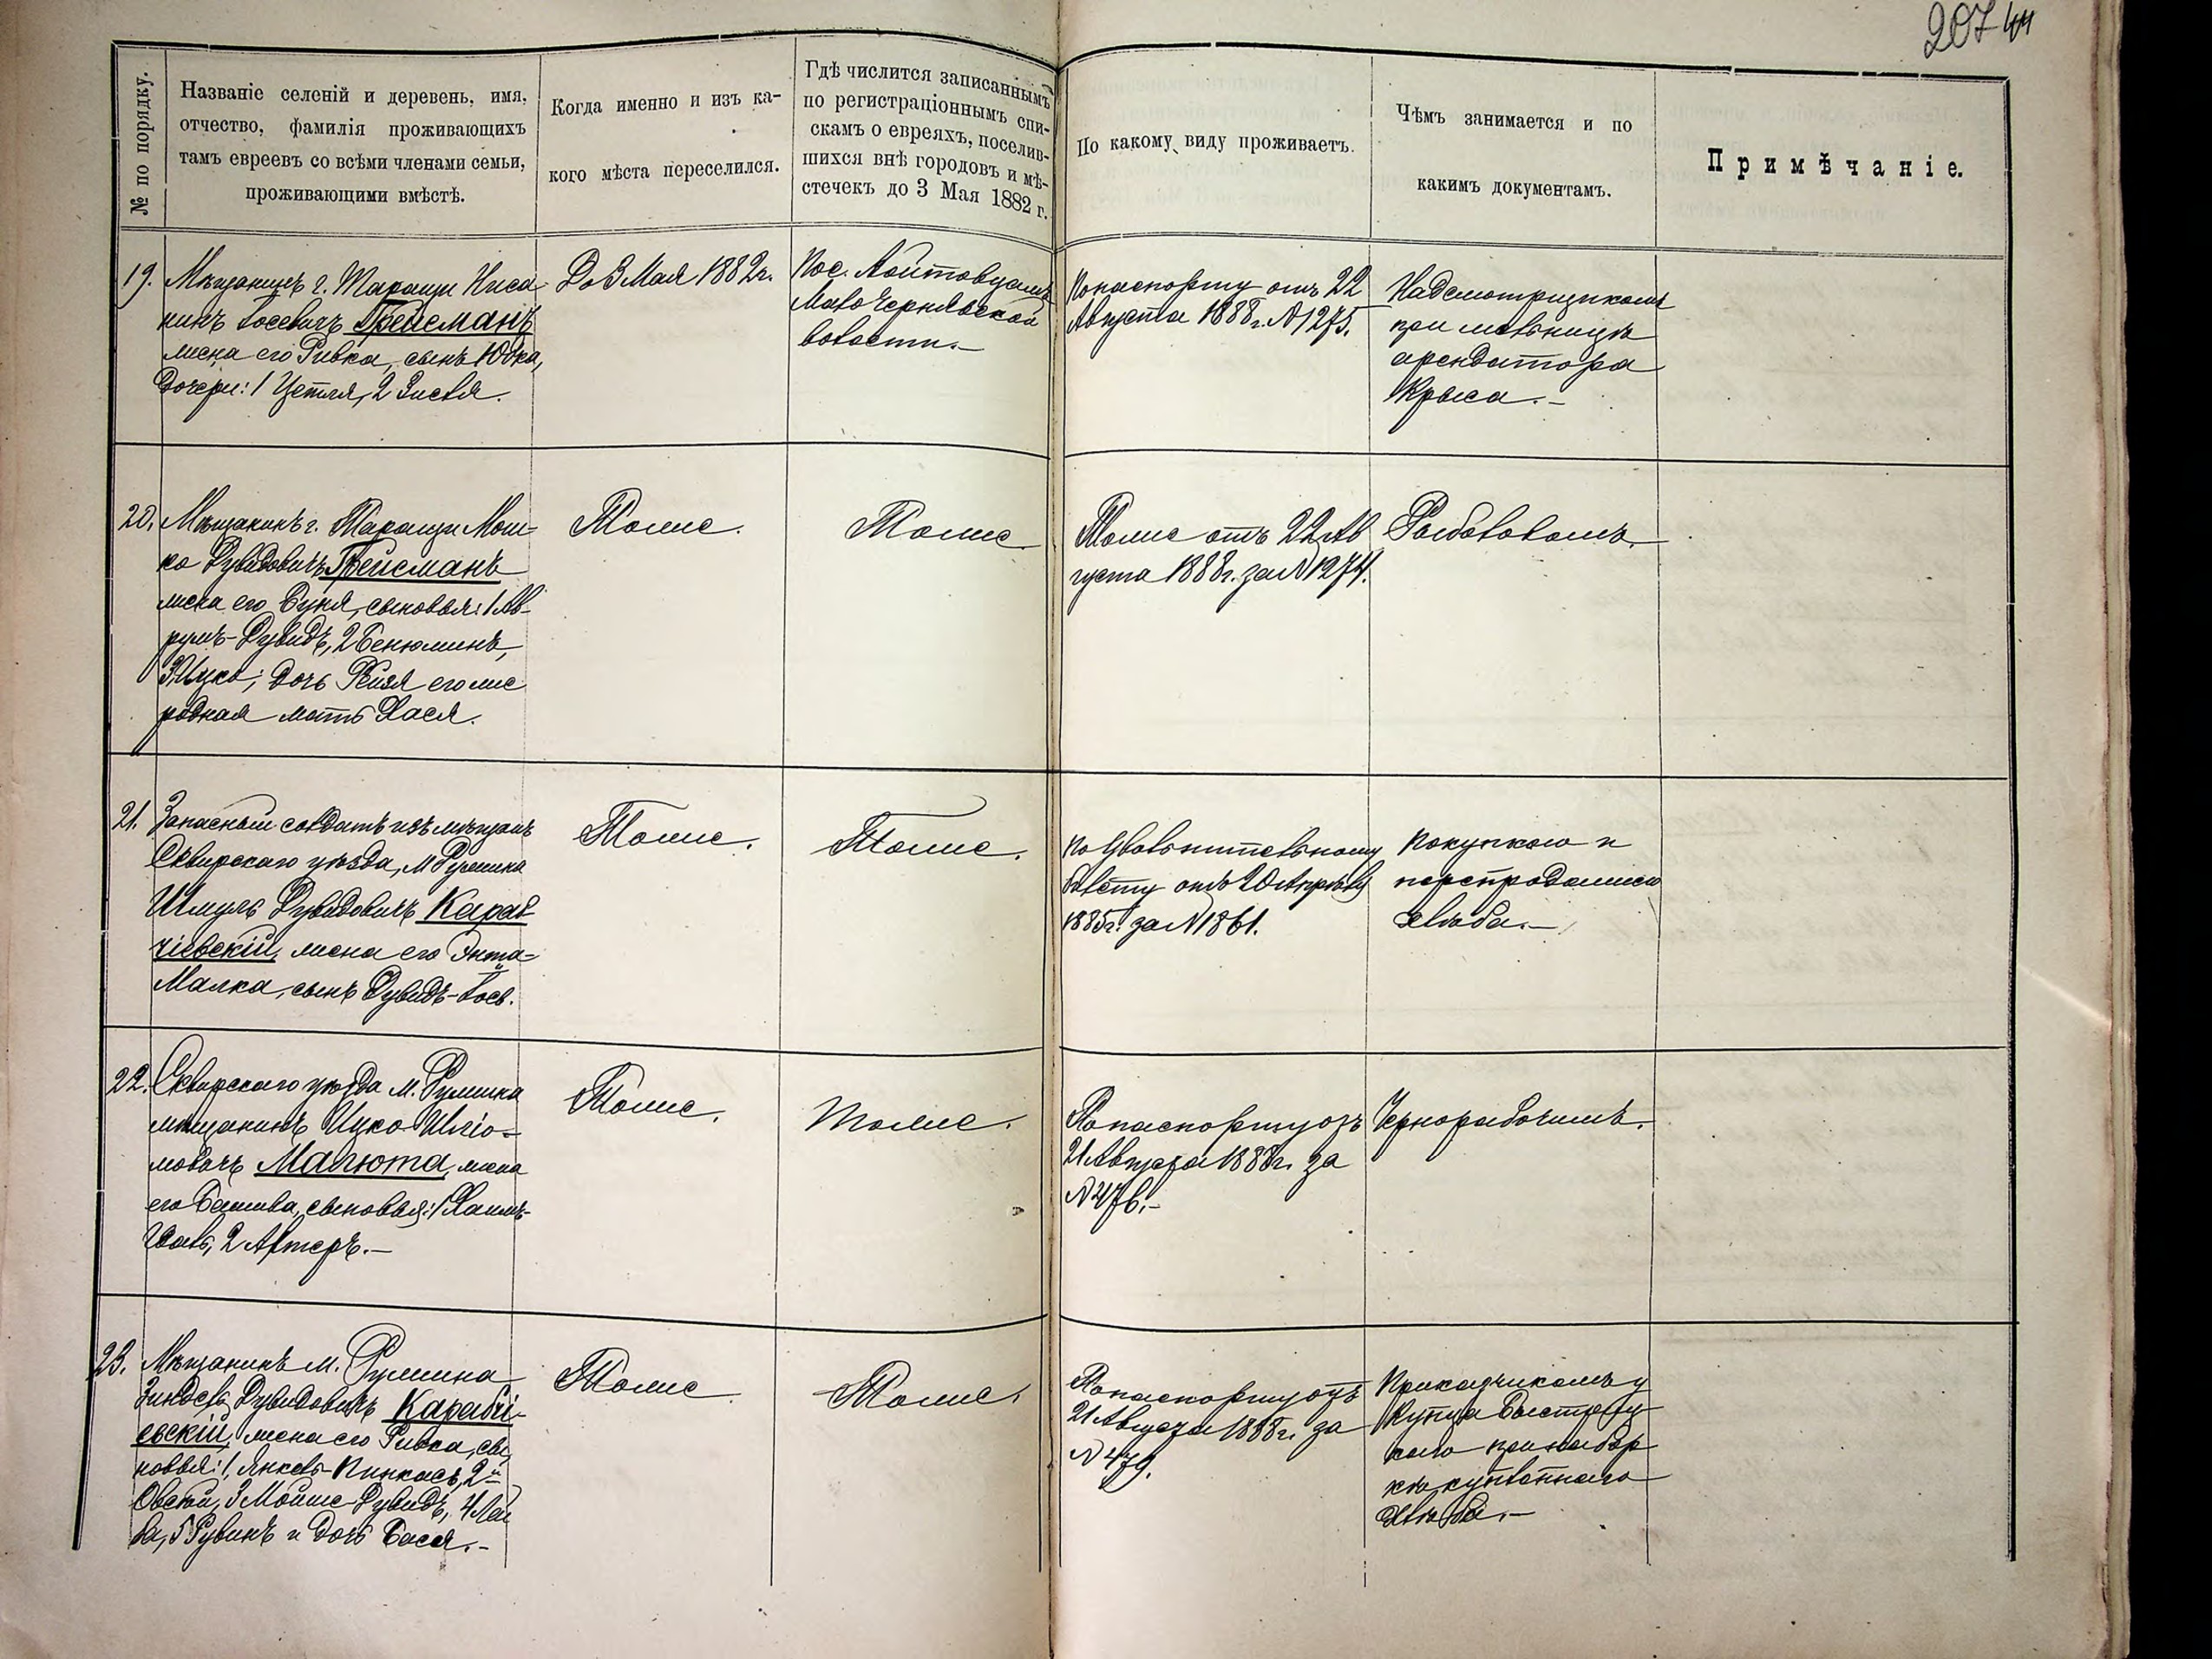 207 44
№ по порядку.
Названіе селеній и деревень, имя,
отчество, фамилія проживающихъ
тамъ евреевъ со всѣми членами семьи,
проживающими вмѣстѣ.
Когда именно и изъ ка-
кого мѣста переселился.
Гдѣ числится записаннымъ
по регистраціоннымъ спи-
скамъ о евреяхъ, поселив-
шихся внѣ городовъ и мѣ-
стечекъ до 3 Мая 1882 г.
По какому виду проживаетъ.
Чѣмъ занимается и по
какимъ документамъ.
Примѣчаніе.
19.
Мѣщанинъ г. Таращи
Іосевичъ Грейсманъ
жена его Ривка, сынъ
дочери: 1 Цетля, 2 Зисля.
До 3 Мая 1882 г.
Пос.
Мало Чернявской
волости.—
По паспорту отъ 22
Августа 1888 г. № 1275.
Надсмотрщикомъ
при мельницѣ
арендатора
Крыса.—
20.
Мѣщанинъ г. Таращи Мош-
ко Дувидовичъ Грейсманъ
жена его Буня, сыновья: 1 Ав-
румъ-Дувидъ, 2 Бенюминъ,
3 Ицко; дочь Рейзя его же
родная мать Хася.
Тоже.
Тоже
Тоже отъ 22 Ав
густа 1888 г. за № 1274.
Рыболовомъ.
21.
Запасный солдатъ изъ мѣщанъ
Сквирскаго уѣзда, М. Ружина
Шмуль Дувидовичъ Карав-
чіевскій, жена его Энта-
Малка, сынъ Дувидъ-Іось.
Тоже.
Тоже.
По Увольнительному
билету отъ 20 Апрѣля
1885 г. за № 1861.
Покупкою и
перепродажею
хлѣба.—
22.
Сквирскаго уѣзда м. Ружина
мѣщанинъ Ицко Шліо-
мовичъ Малюта, жена
его Башива, сыновья: 1 Хаимъ-
2
Тоже.
Тоже.
По паспорту отъ
21 Августа 1888 г. за
№ 476.—
Чернорабочимъ.
23.
Мѣщанинъ м. Ружина
Зиндель Дувидовичъ Карабчі-
евскій, жена его Ривка, сы-
новья: 1, Янкель Пинкасъ, 2й
Овсей, 3 Мойше-Дувидъ, 4 Лей
ба, 5 Рувинъ и дочь Бася.—
Тоже
Тоже.
По паспорту отъ
21 Августа 1888 г. за
№ 479.
Прикащикомъ у
Купца
каго при
купленнаго
хлѣба.—